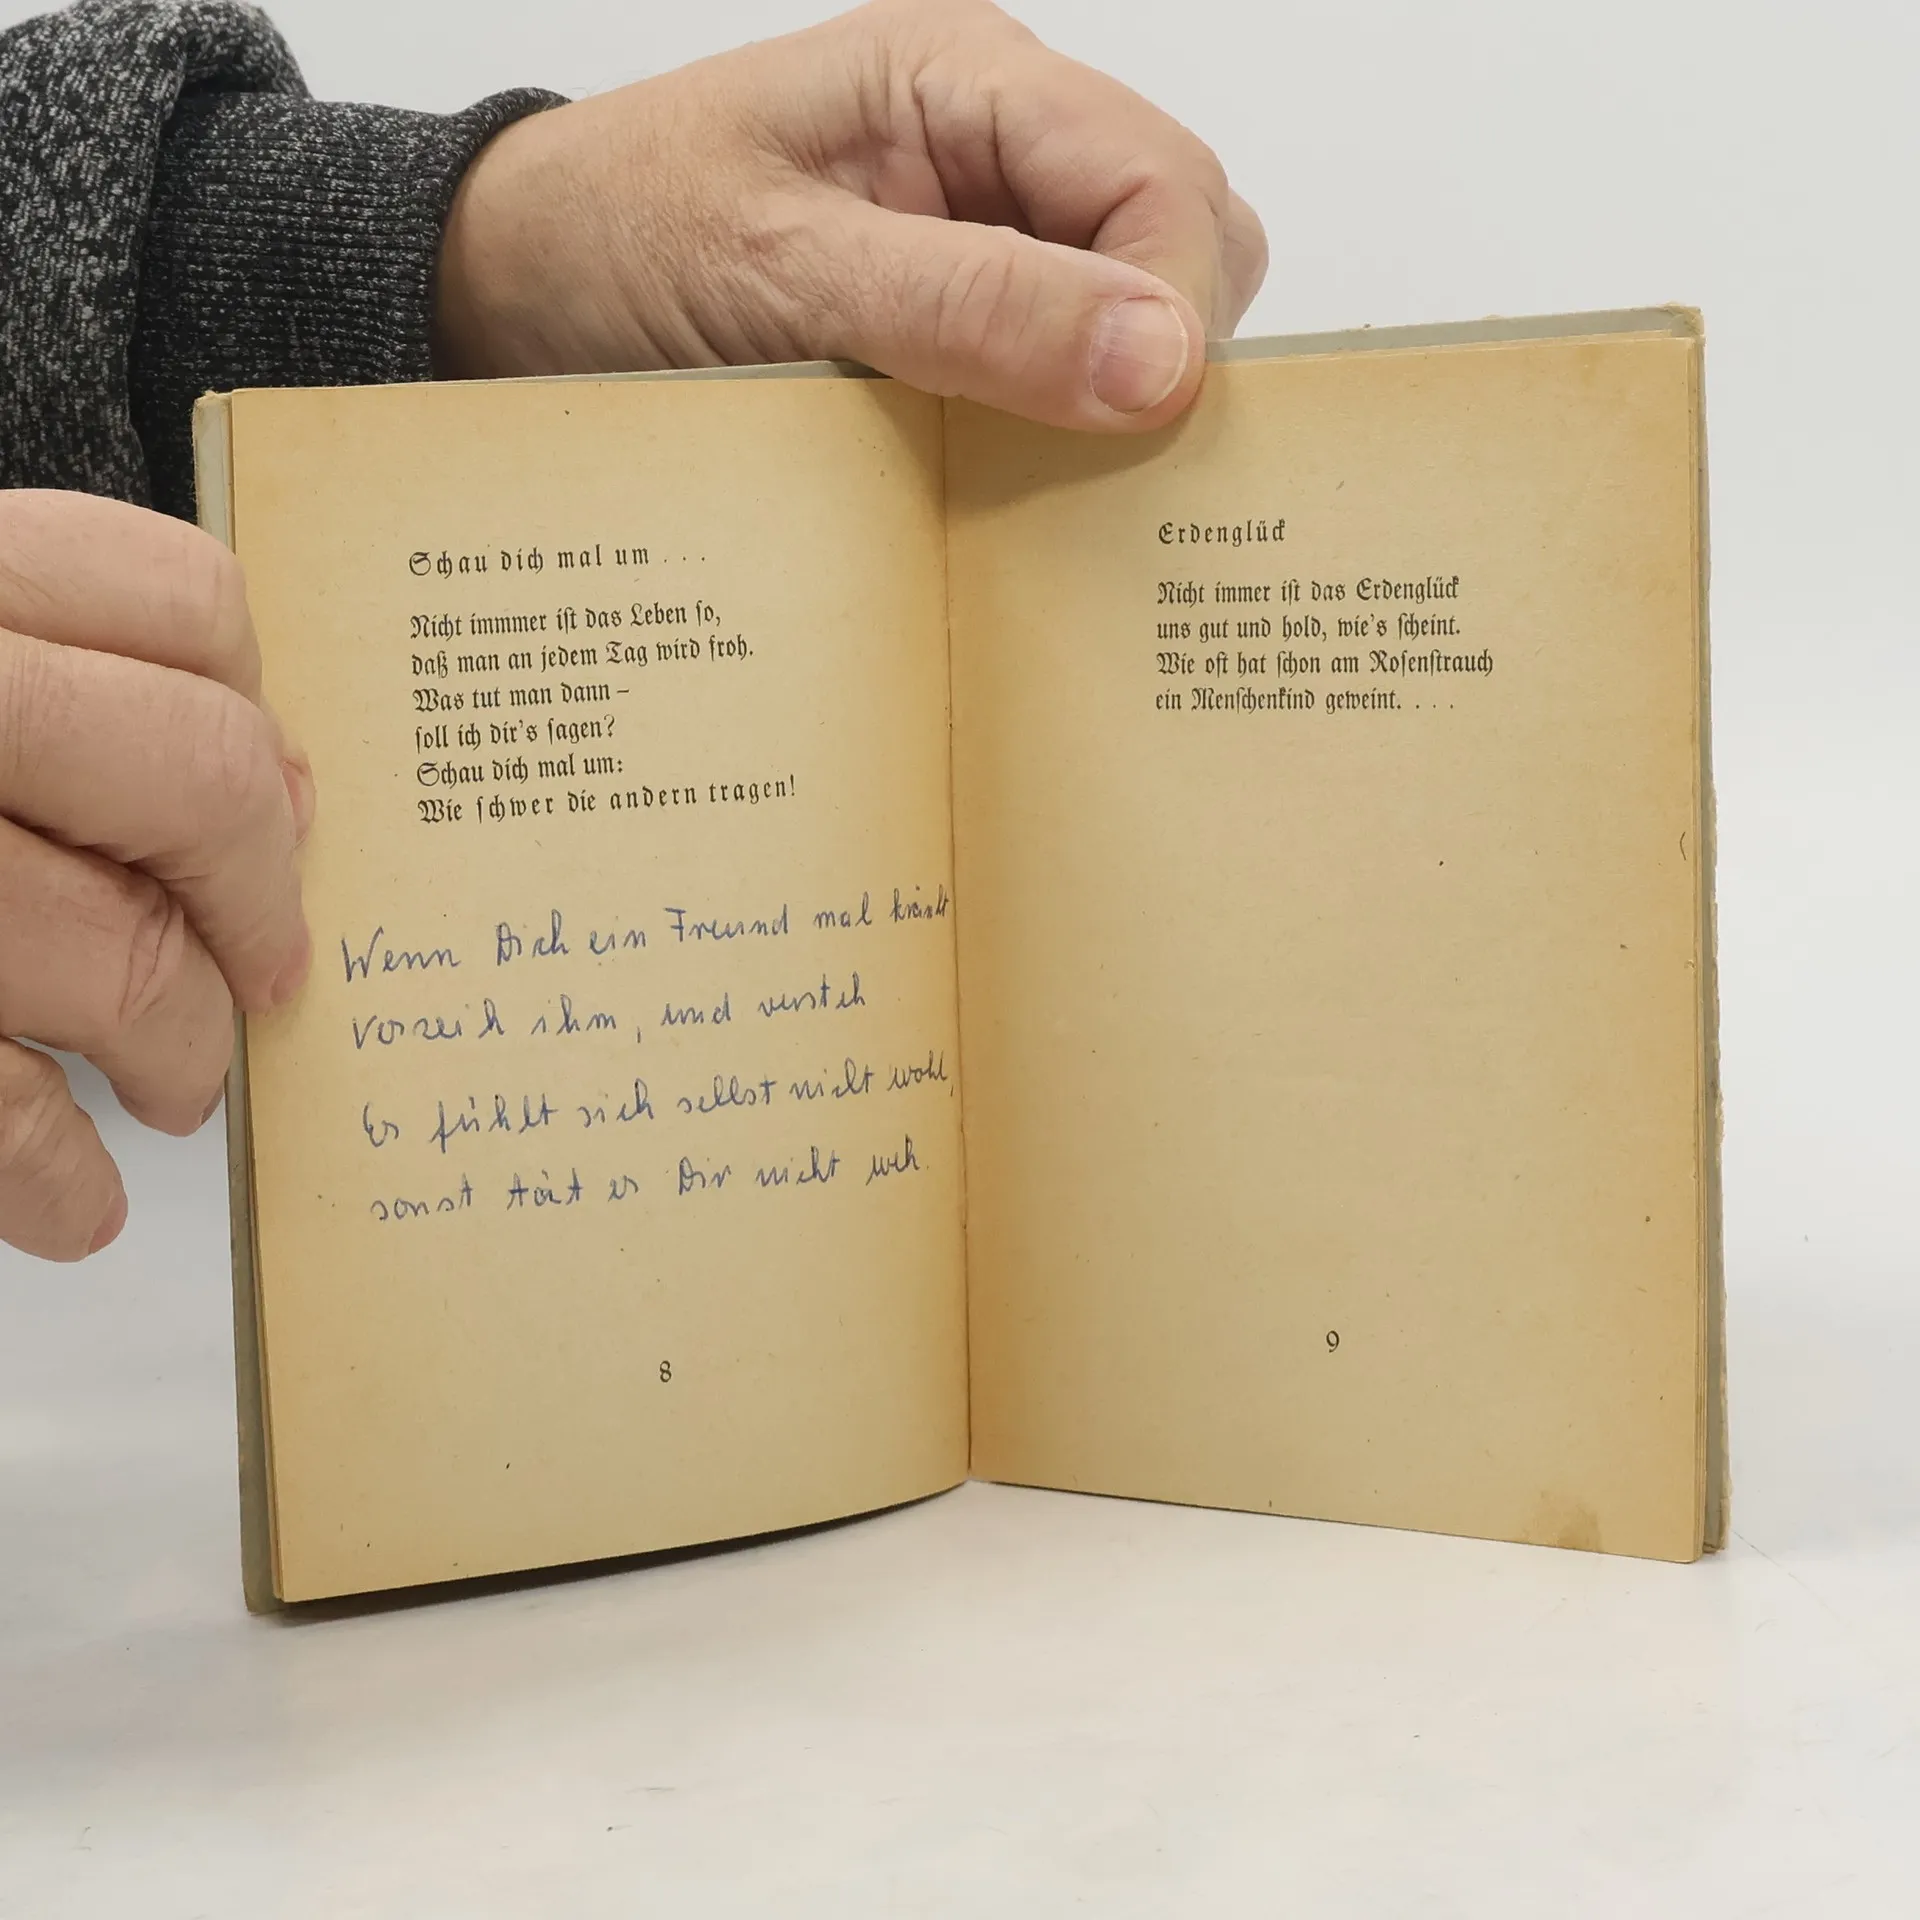 Schau dich mal um . . .
Nicht immmer ist das Leben so,
daß man an jedem Tag wird froh.
Was tut man dann –
soll ich dir's sagen?
Schau dich mal um:
Wie schwer die andern tragen!
Wenn Dich ein Freund mal kränkt
verzeih ihm, und versteh
Er fühlt sich selbst nicht wohl,
sonst tät er Dir nicht weh.
8
Erdenglück
Nicht immer ist das Erdenglück
uns gut und hold, wie's scheint.
Wie oft hat schon am Rosenstrauch
ein Menschenkind geweint. . . .
9